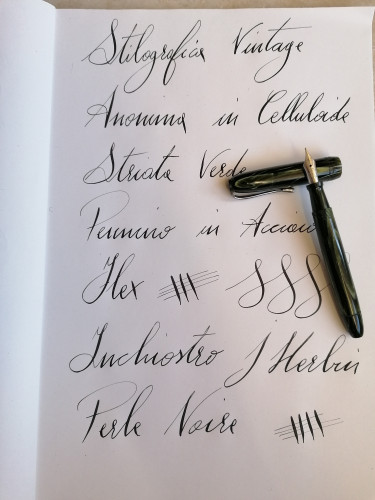 Stilografica Vintage
Anonima in Celluloide
Striata Verde
Pennino in
Flex SSS
Inchiostro J Herbin
Perle Noire